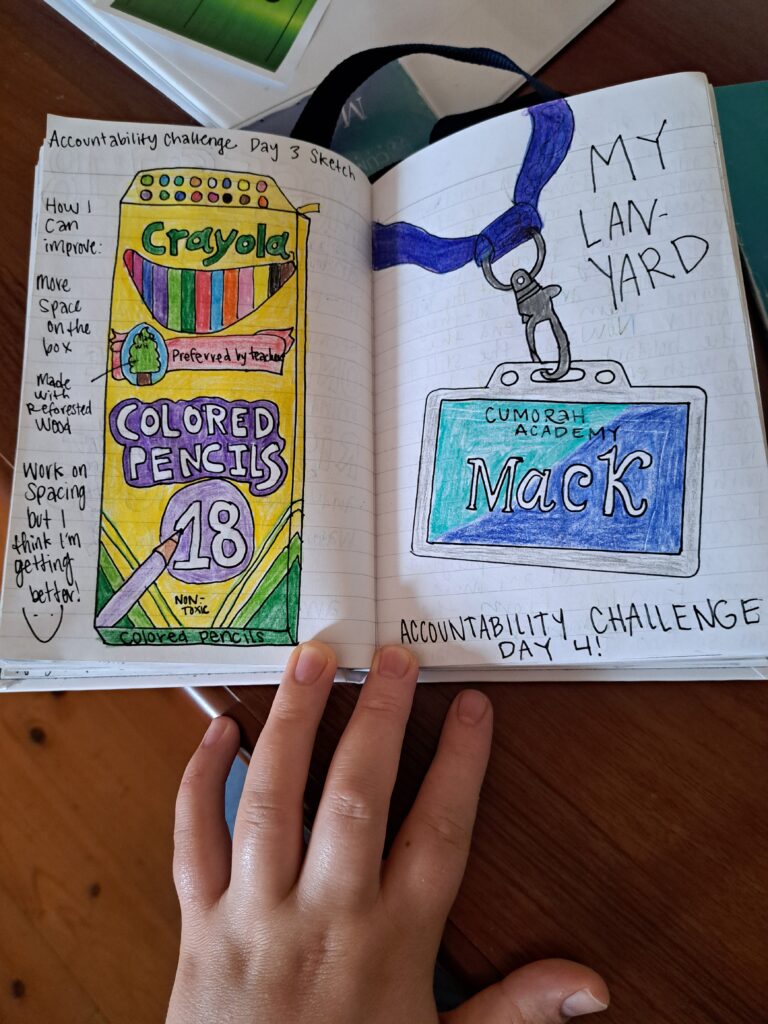 Accountability Challenge Day 3 Sketch
How I
Can
improve:
more
Space
on the
box
Made
with
Reforested
Wood
Work on
Spacing
but I
think I'm
getting
better!
Crayola
Preferred by teachers
COLORED
PENCILS
18
NON-
TOXIC
Colored pencils
MY
LAN-
YARD
CUMORAH
ACADEMY
Mack
ACCOUNTABILITY CHALLENGE
DAY 4!